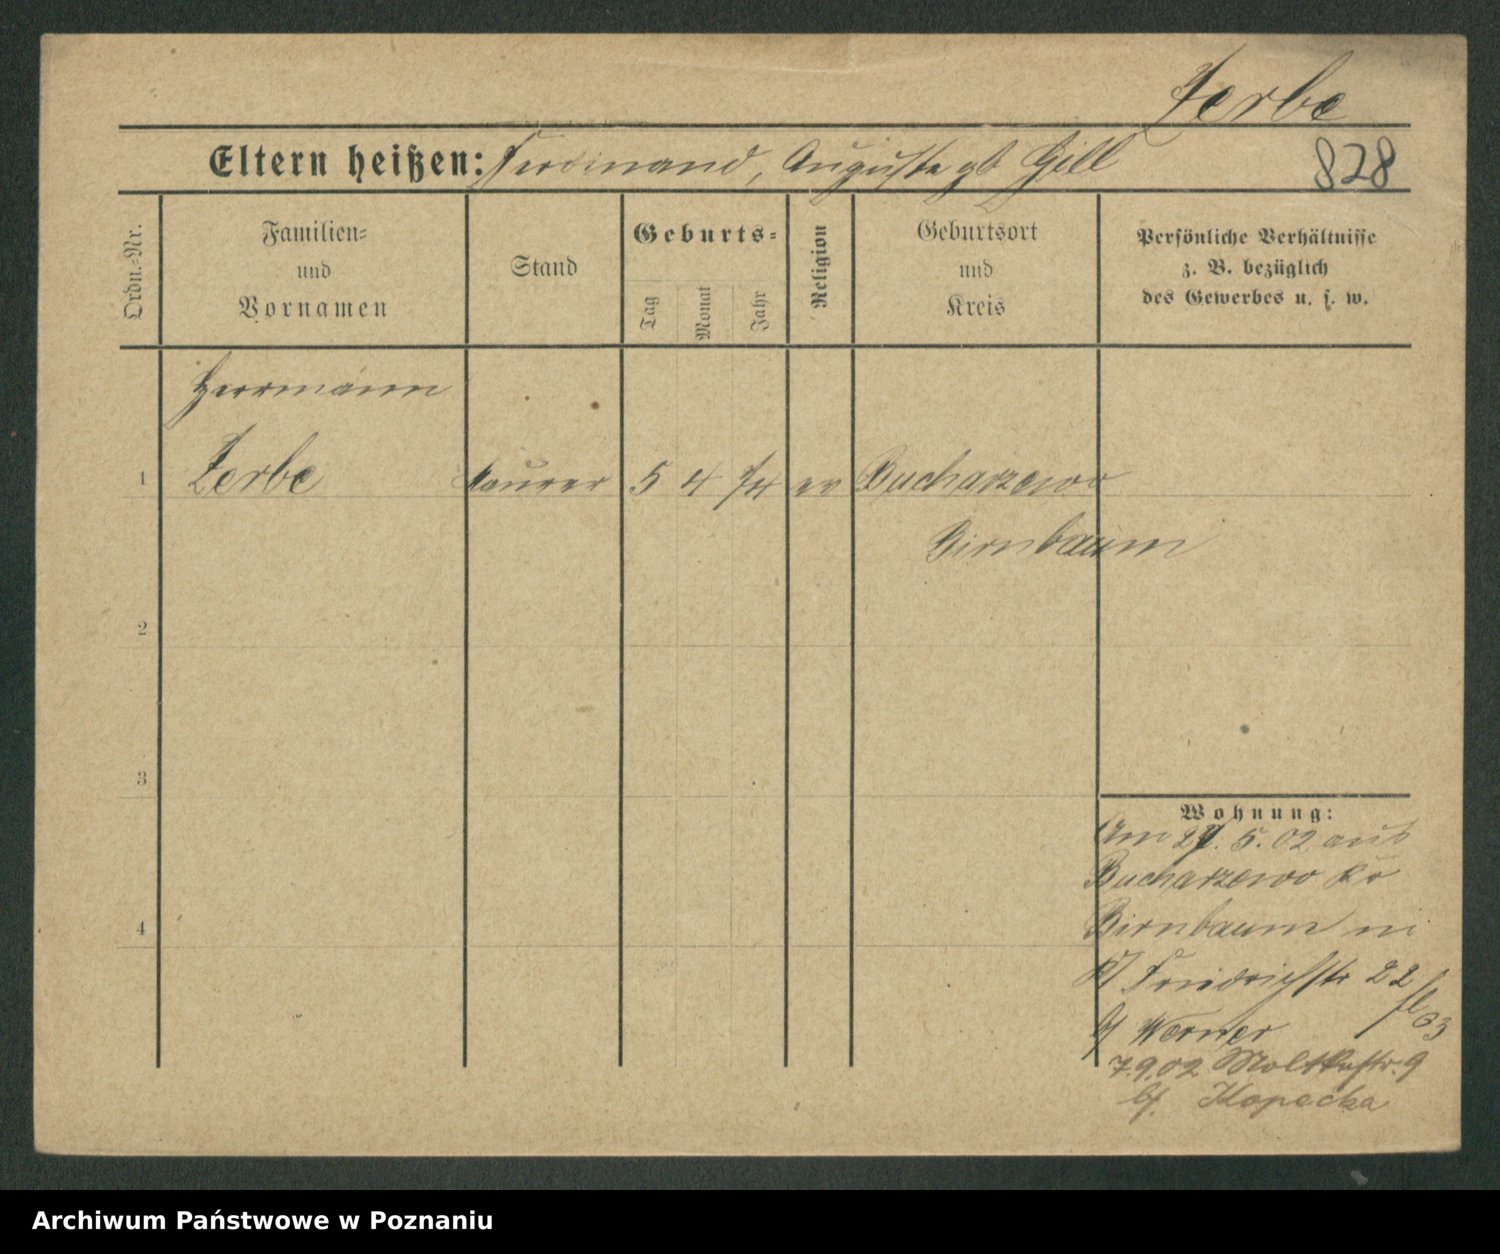 Zerbe
Eltern heißen: Ferdinand, Auguste gb Gill
828
Ordn.-Nr.
Familien-
und
Vornamen
Stand
Geburts-
Tag
Monat
Jahr
Religion
Geburtsort
und
Kreis
Persönliche Verhältnisse
z. B. bezüglich
des Gewerbes u. s. w.
Herrmann
1 Zerbe Maurer 5 4 74 ev Bucharzewo
Birnbaum
2
3
4
Wohnung:
Am 27. 5. 02 aus
Bucharzewo Kr
Birnbaum
Friedrichstr 22
Werner
7.9.02 Moltkestr. 9
bf. Kopecka
Archiwum Państwowe w Poznaniu